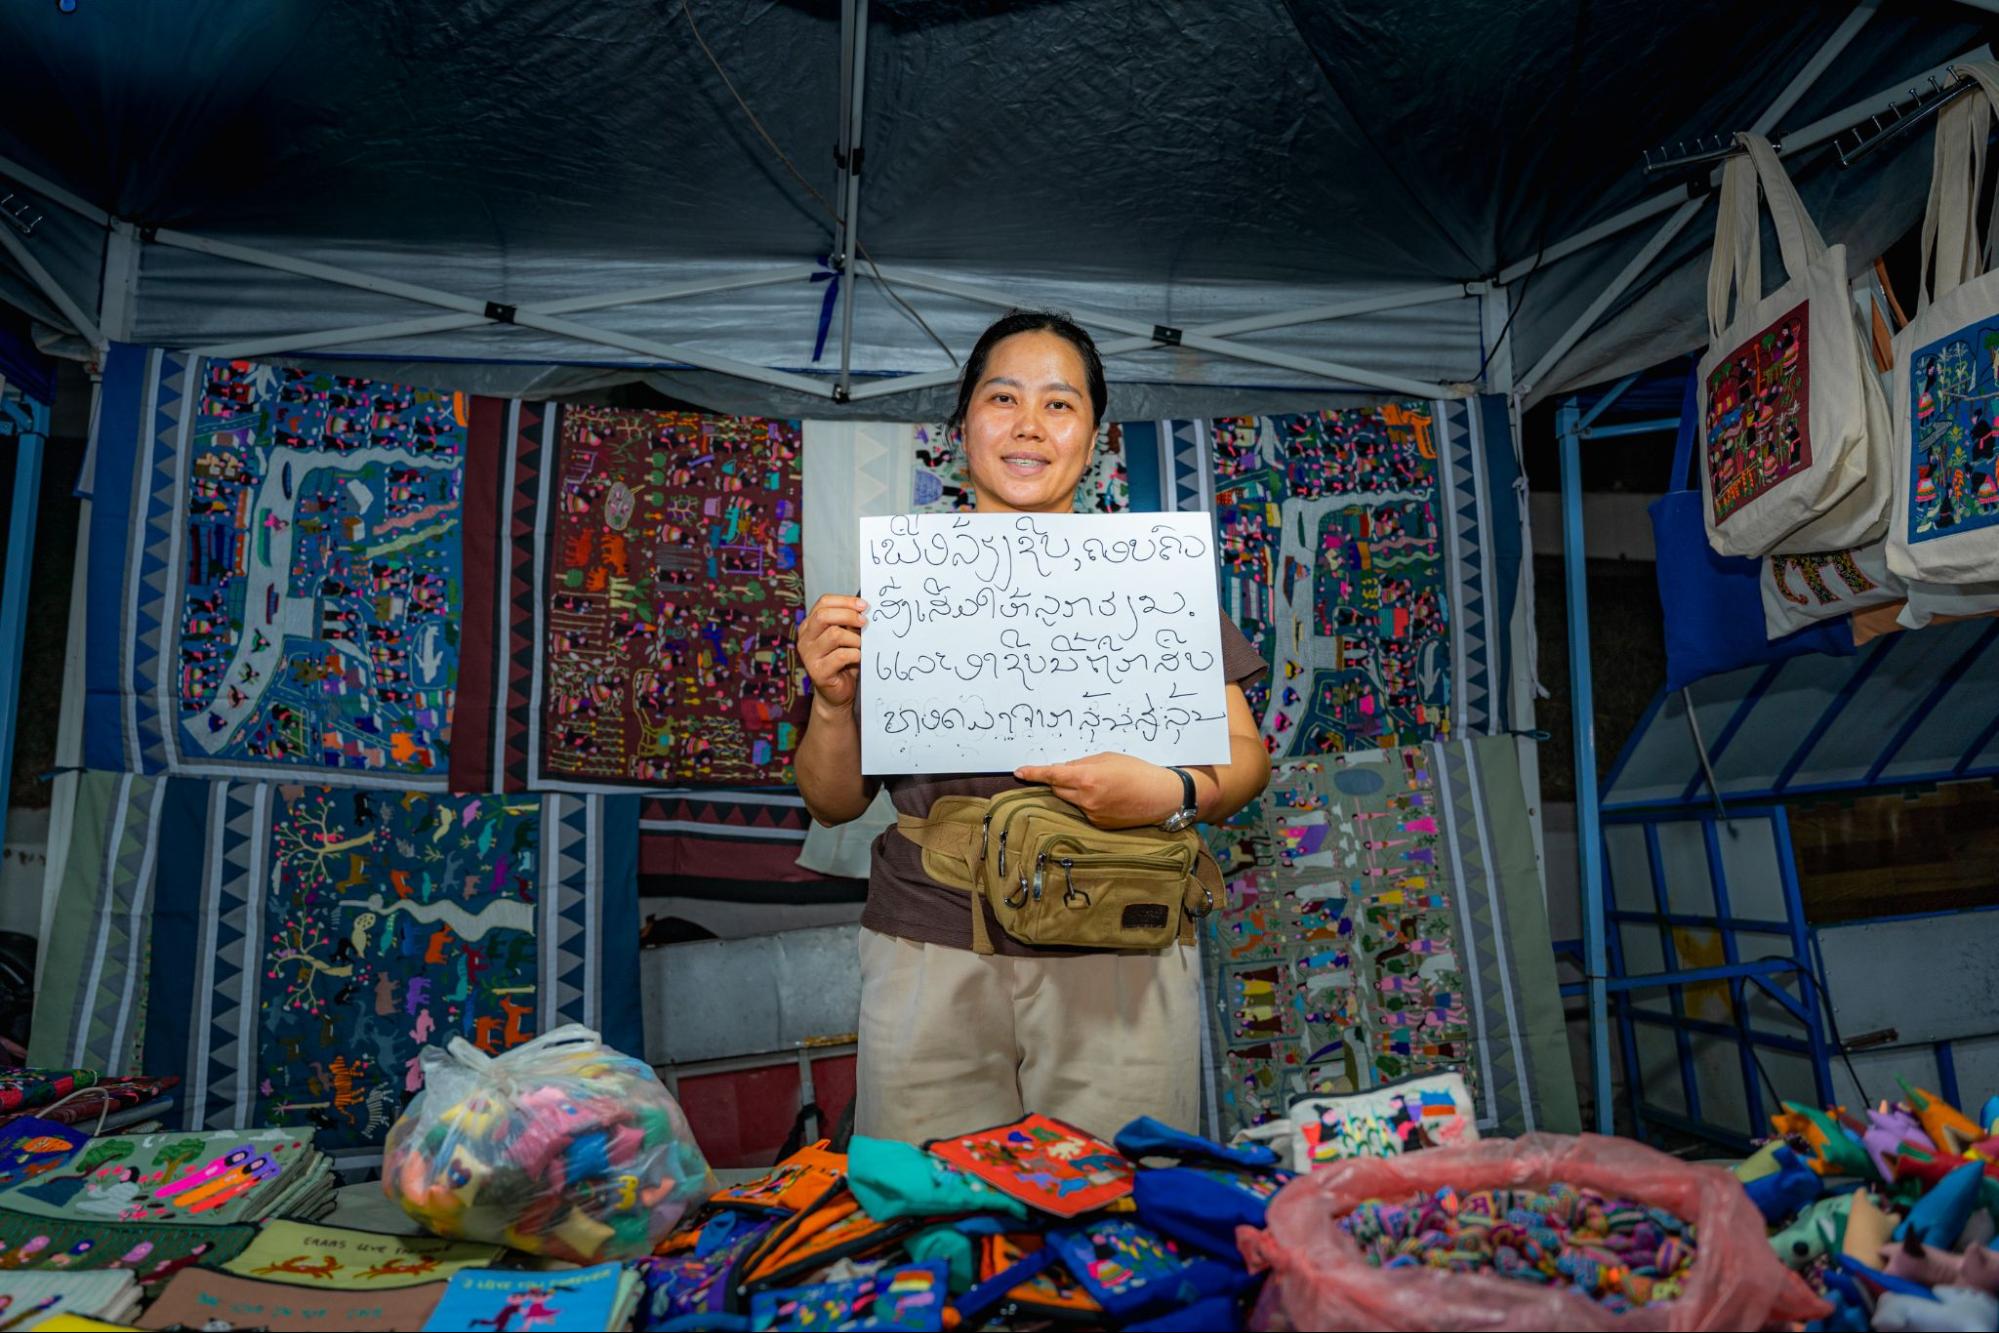 ເພື່ອລ້ຽງຊີບ, ຄອບຄົວ
ສົ່ງເສີມໃຫ້ລູກຮຽນ.
ແລະອາຊີບນີ້ ສືບ
ທອດມາຈາກລຸ້ນສູ່ລຸ້ນ
I LOVE YOU FOREVER